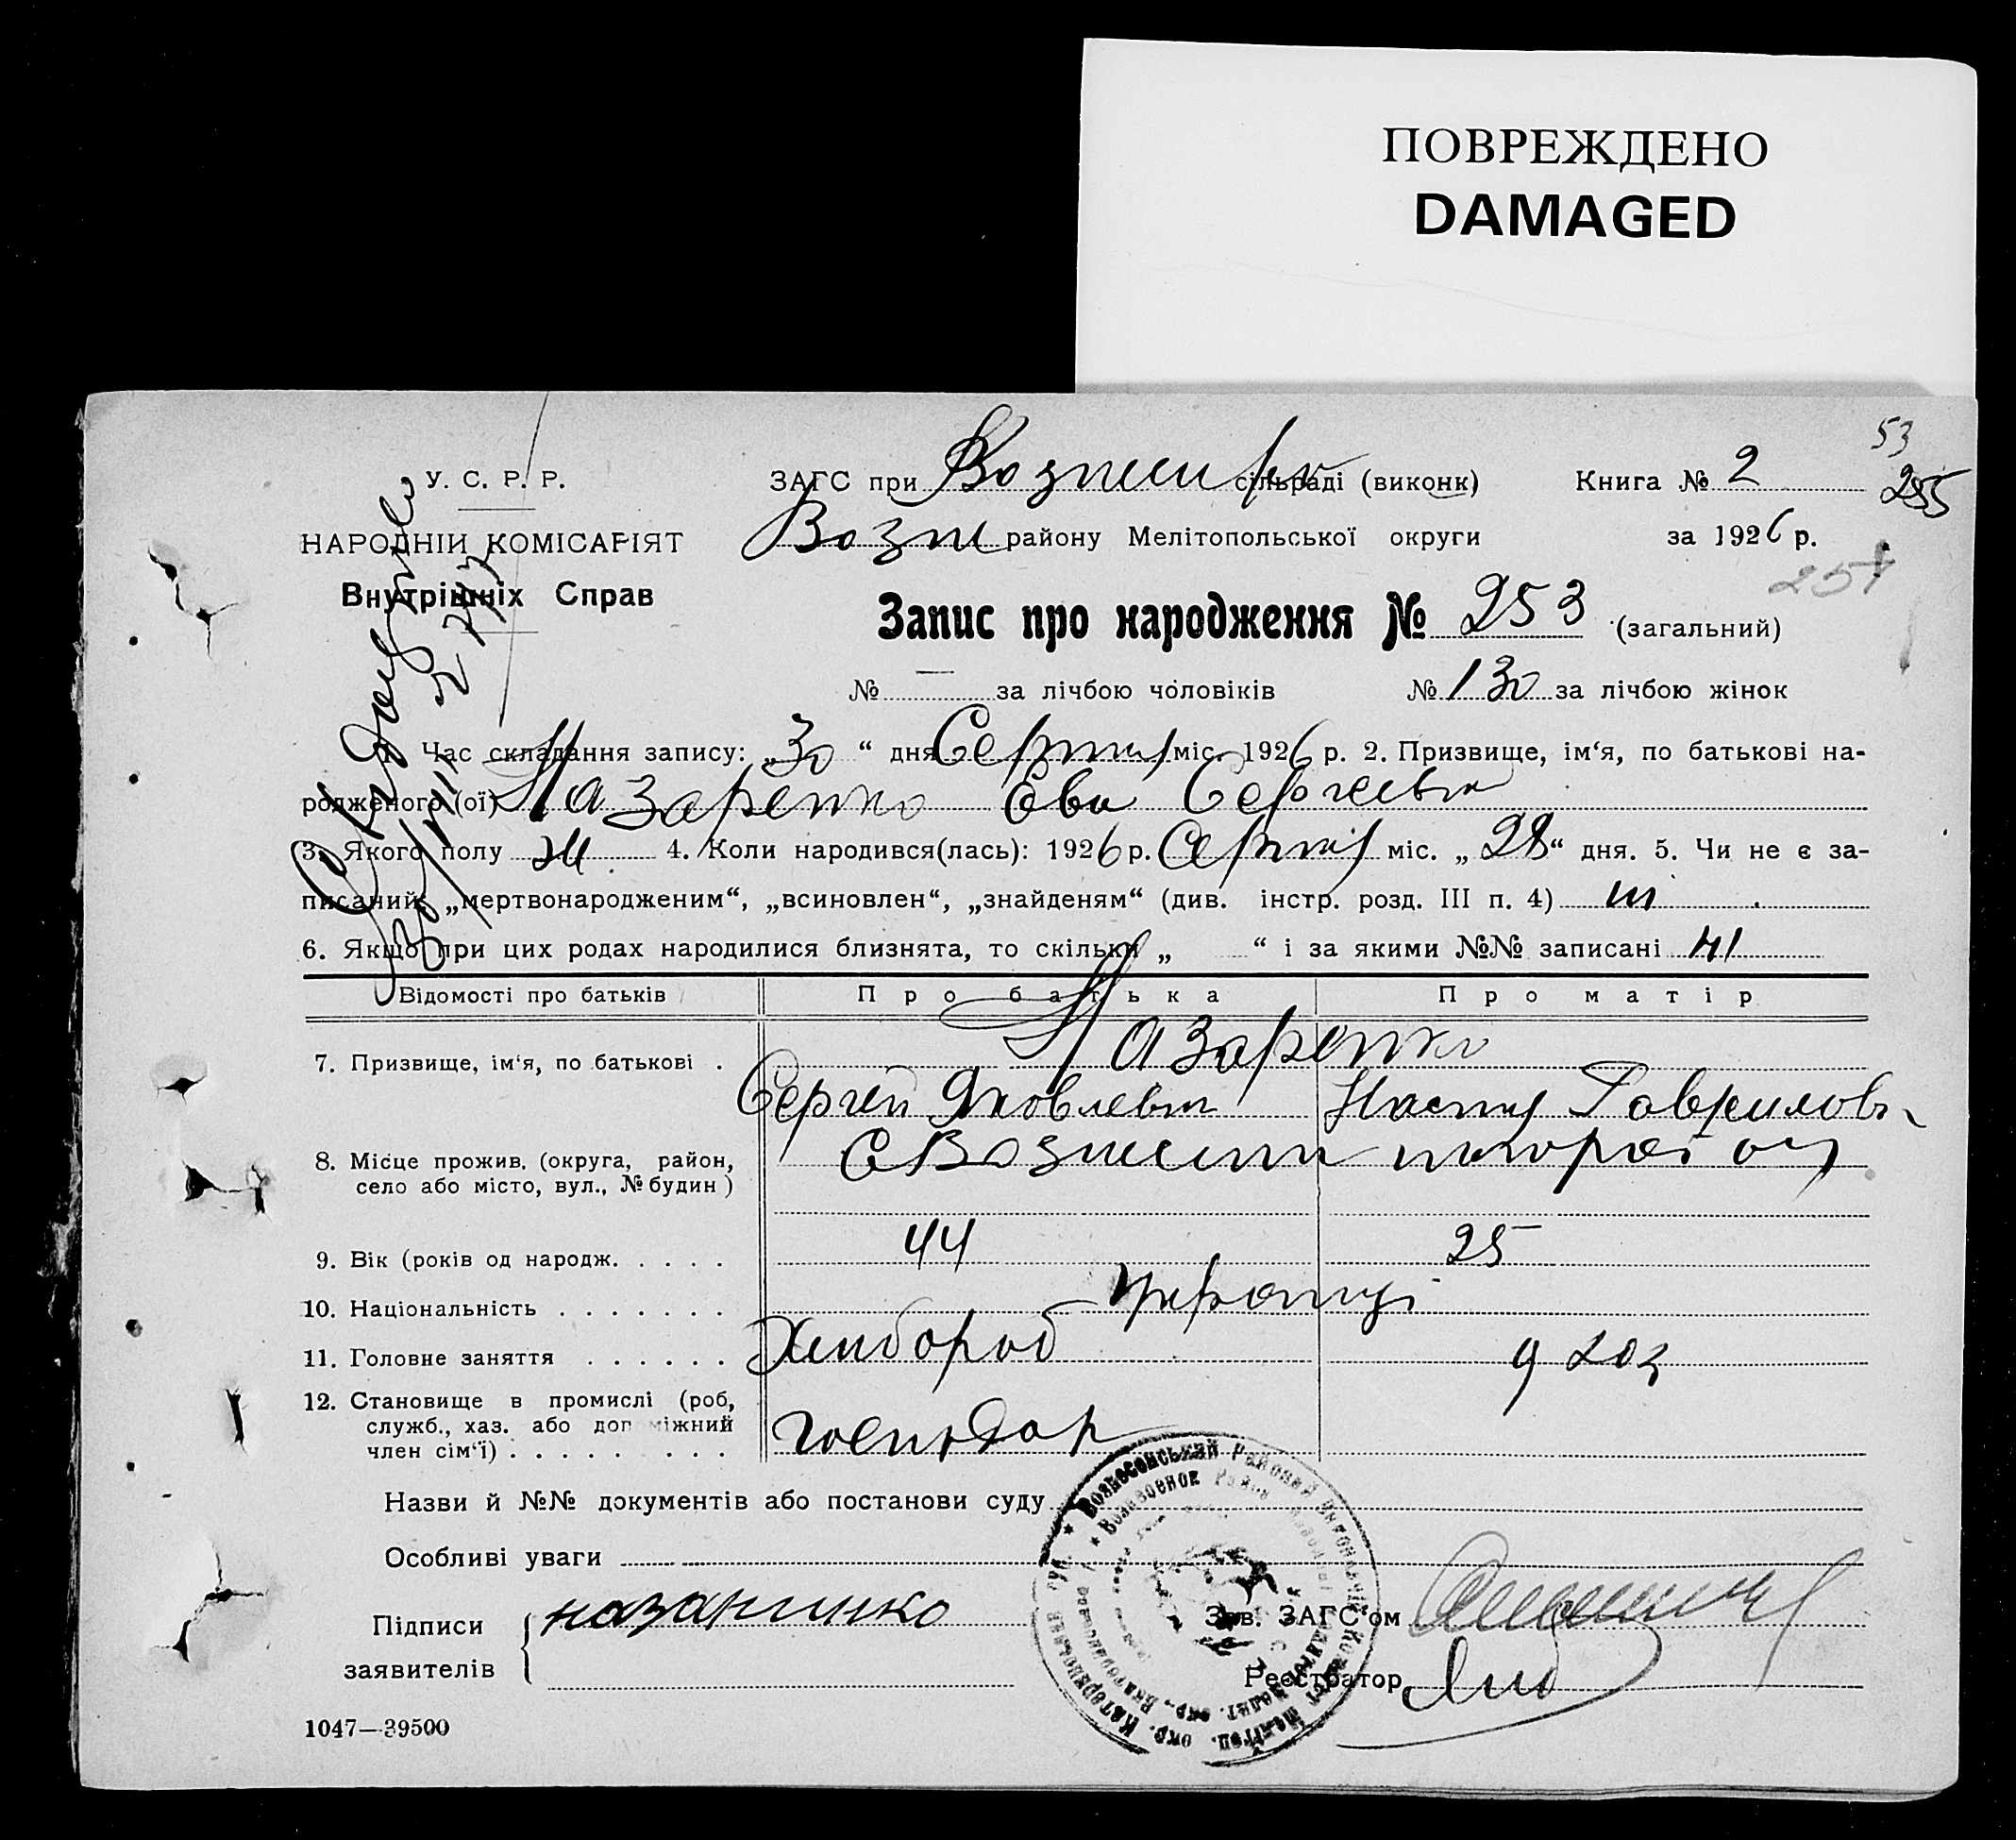 ПОВРЕЖДЕНО
DAMAGED
53
У. С. Р. Р. ЗАГС при сільраді (виконк) Книга № 2 255
НАРОДНІЙ КОМІСАРІЯТ Возн району Мелітопольської округи за 1926 р.
Внутрішніх Справ
251
Запис про народження № 253 (загальний)
№ — за лічбою чоловіків № 130 за лічбою жінок
Час складання запису: „30“ дня Серпня міс. 1926 р. 2. Призвище, ім'я, по батькові на-
родженого (ої) Назаренко Ева Сергеевна
3. Якого полу Ж 4. Коли народився(лась): 1926 р. Серпня міс. „28“ дня. 5. Чи не є за-
писаний: „мертвонародженим“, „всиновлен“, „знайденям“ (див. інстр. розд. III п. 4) ні
6. Якщо при цих родах народилися близнята, то скільки „ “ і за якими №№ записані ні
Відомості про батьків Про батька Про матір
Назаренко
7. Призвище, ім'я, по батькові .
Сергей Яковлевич Настя Гавриловн
8. Місце прожив. (округа, район,
село або місто, вул., № будин )
9. Вік (років од народж. . . . . 44 25
10. Національність . . . . . . . Українці
11. Головне заняття . . . . . . Хлибороб д хоз
12. Становище в промислі (роб,
служб., хаз. або допоміжний
член сім'ї) . . . . . . . . . господар
Назви й №№ документів або постанови суду
Особливі уваги
Підписи
заявителів
назаринко
Зав. ЗАГС'ом
Реєстратор
1047—39500